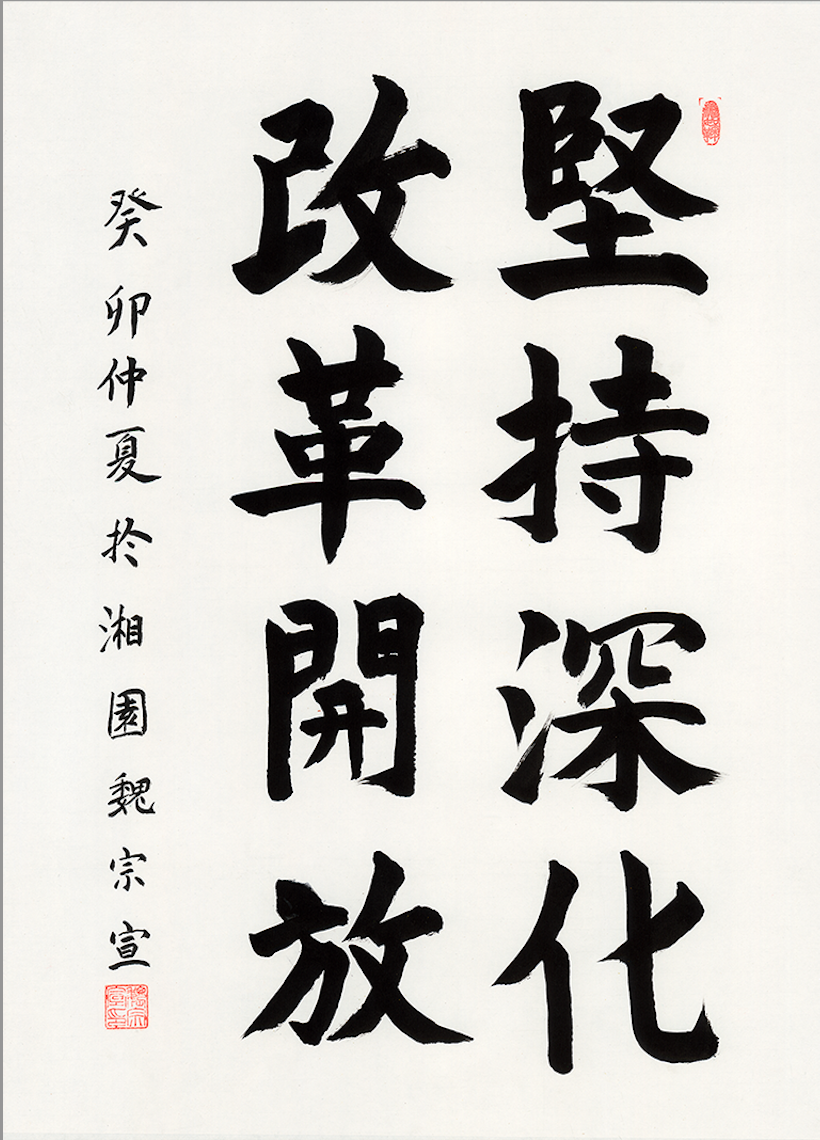 堅持深化
改革開放
癸卯仲夏於湘園魏宗宣